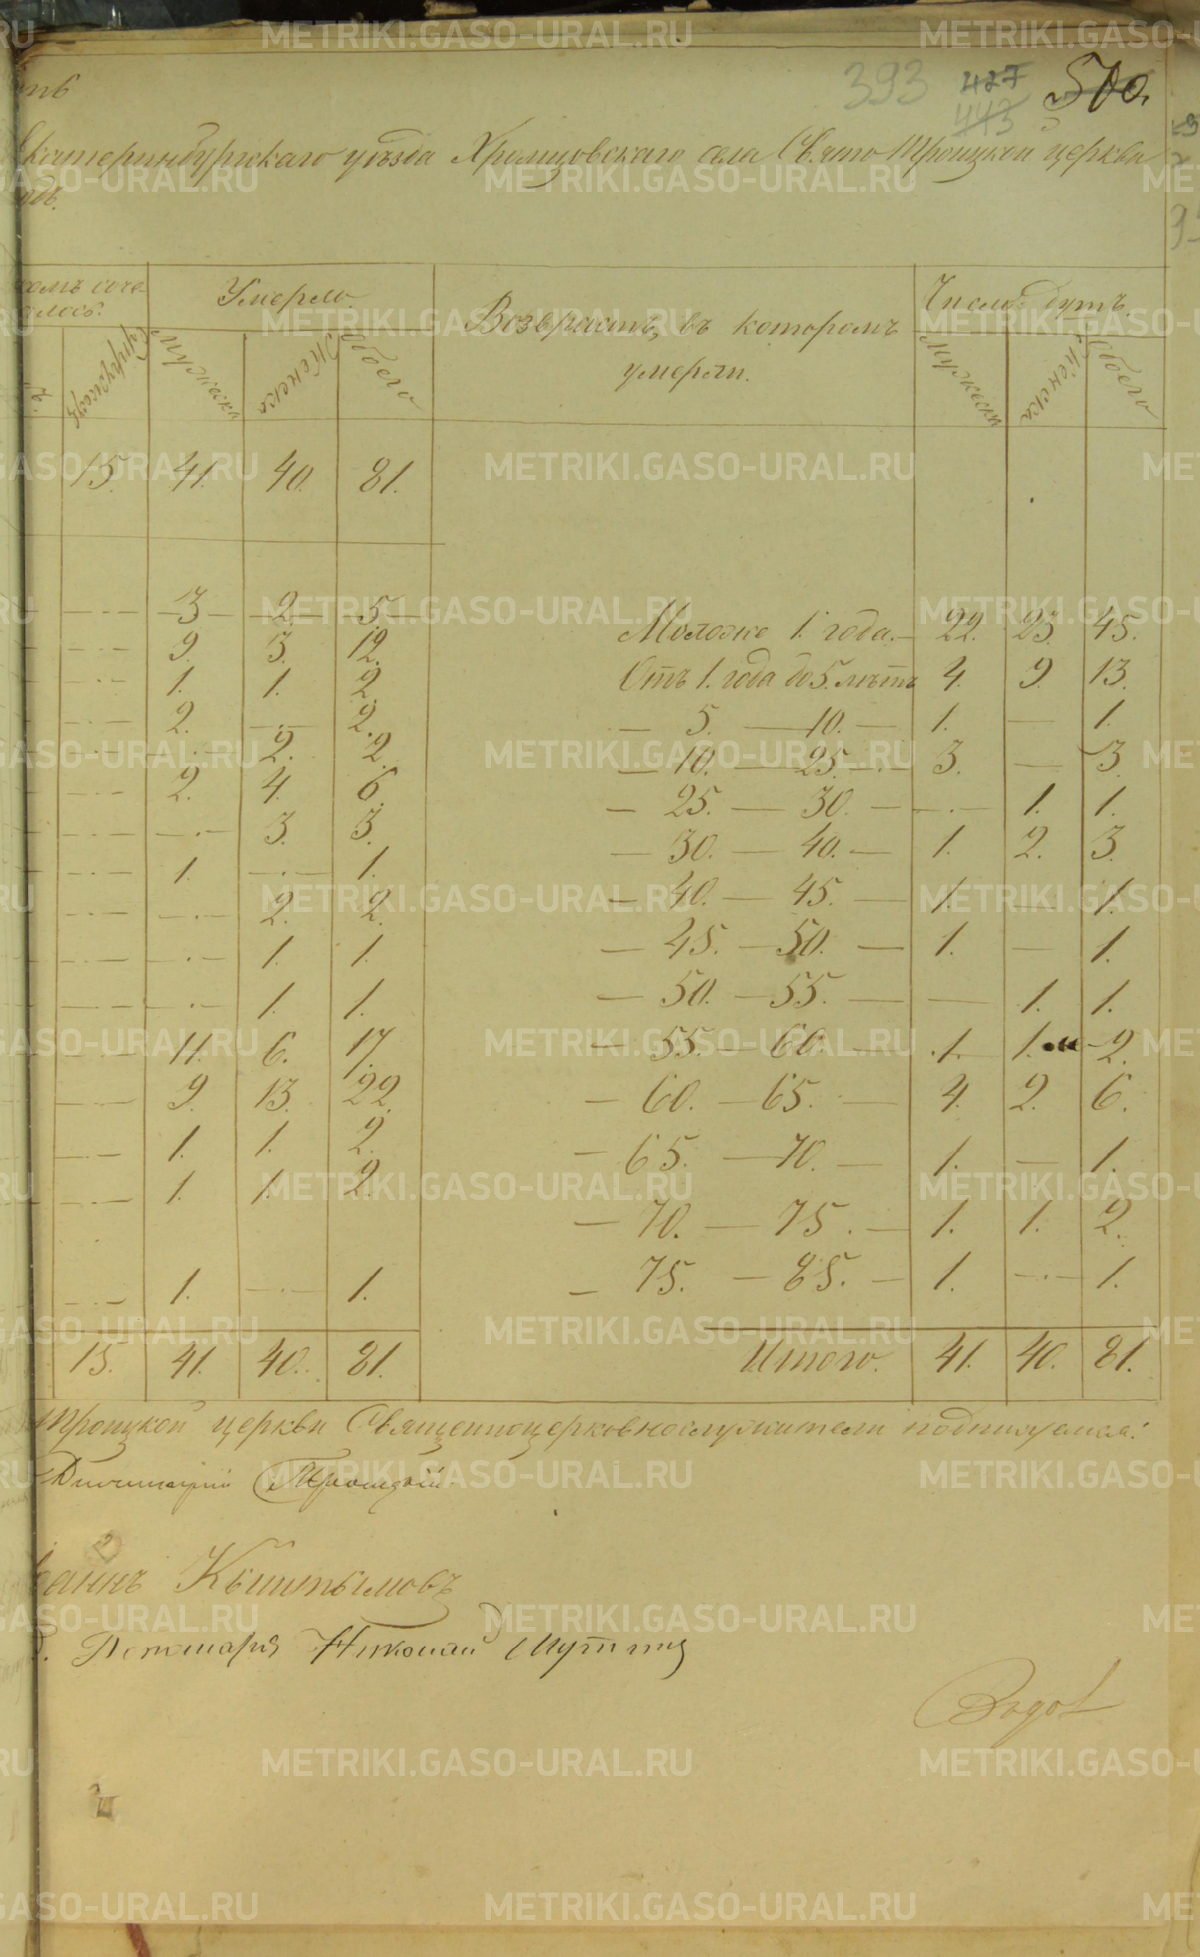 393 427 500.
443
Екатеринбургскаго уѣзда Хромцовскаго села Свято Троицкой церкви
Умерло. Возврастъ, въ которомъ умерли. Число душъ.
Супружествъ Мужеска Женска Обоего Мужеска Женска Обоего
15. 41. 40. 81.
— 3 — 2. — 5. — Моложе 1. года. — 22. 23. 45.
— 9. 3. 12. Отъ 1. года до 5. лѣтъ 4. 9. 13.
— 1. 1. 2. — 5. — 10. — 1. — 1.
— 2. — 2. — 10. — 25. — 3. — 3.
— — 2. 2. — 25. — 30. — — 1. 1.
— 2. 4. 6. — 30. — 40. — 1. 2. 3.
— — 3. 3. — 40. — 45. — 1. — 1.
— 1. — 1. — 45. — 50. — 1. — 1.
— — 2. 2. — 50. — 55. — — 1. 1.
— — 1. 1. — 55. — 60. — 1. 1. 2.
— — 1. 1. — 60. — 65. — 4. 2. 6.
— 11. 6. 17. — 65. — 70. — 1. — 1.
— 9. 13. 22. — 70. — 75. — 1. 1. 2.
— 1. 1. 2. — 75. — 85. — 1. — 1.
— 1. 1. 2.
— 1. — 1.
15. 41. 40. 81. Итого. 41. 40. 81.
Троицкой церкви Священноцерковнослужители подписуемся:
Троицкій
Кыштымовъ
Пономаря Николай
METRIKI.GASO-URAL.RU